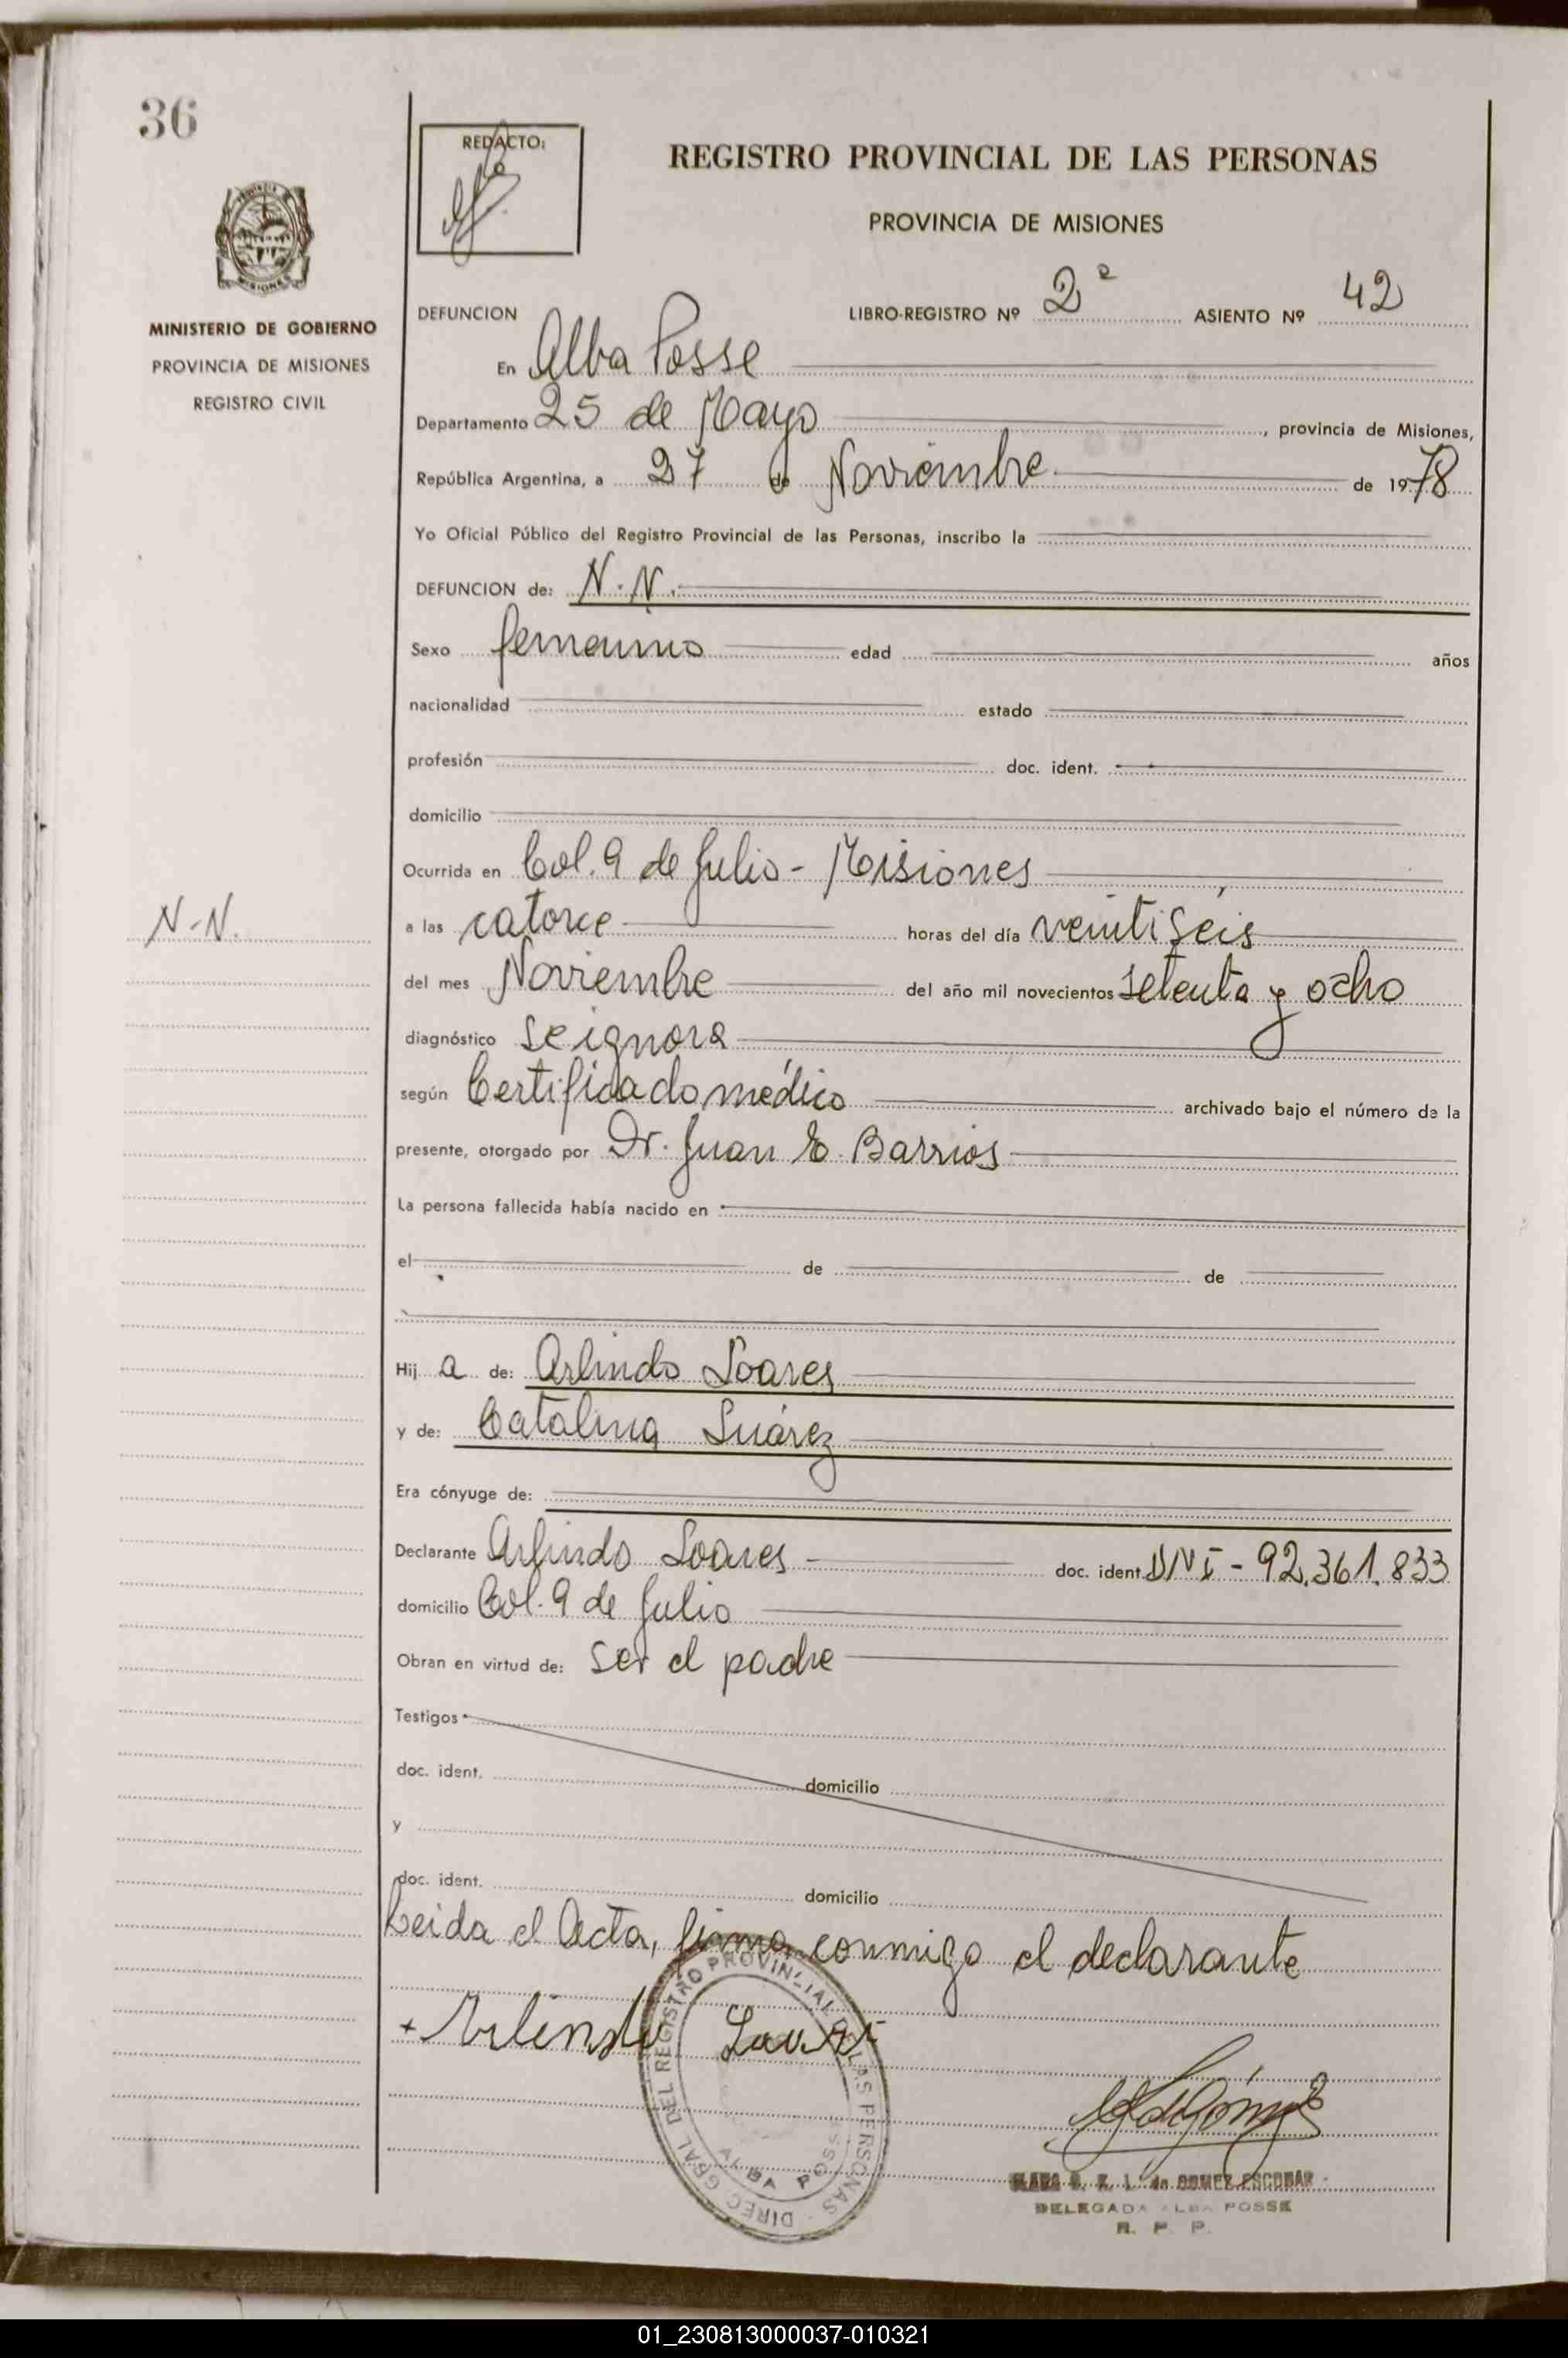 36
REDACTO:
REGISTRO PROVINCIAL DE LAS PERSONAS
PROVINCIA DE MISIONES
MISIONES
MINISTERIO DE GOBIERNO
PROVINCIA DE MISIONES
REGISTRO CIVIL
DEFUNCION LIBRO-REGISTRO Nº 2º ASIENTO Nº 42
En Alba Posse
Departamento 25 de Mayo, provincia de Misiones,
República Argentina, a 27 de Noviembre de 1978
Yo Oficial Público del Registro Provincial de las Personas, inscribo la
DEFUNCION de: N.N.
Sexo femenino edad años
nacionalidad estado
profesión doc. ident.
domicilio
Ocurrida en Col. 9 de Julio - Misiones
N-N.
a las catorce horas del día veintiseis
del mes Noviembre del año mil novecientos setenta y ocho
diagnóstico se ignora
según Certificado médico archivado bajo el número de la
presente, otorgado por Dr. Juan E. Barrios
La persona fallecida había nacido en
el de de
Hij a de: Arlindo Soares
y de: Catalina Suárez
Era cónyuge de:
Declarante Arlindo Soares doc. ident. DNI - 92.361.833
domicilio Col. 9 de Julio
Obran en virtud de: ser el padre
Testigos
doc. ident. domicilio
y
doc. ident. domicilio
Leida el Acta, firma conmigo el declarante
DIREC. GRAL. DEL REGISTRO PROVINCIAL DE LAS PERSONAS
ALBA POSSE
de GOMEZ ESCOBAR
DELEGADA ALBA POSSE
R. P. P.
01_230813000037-010321